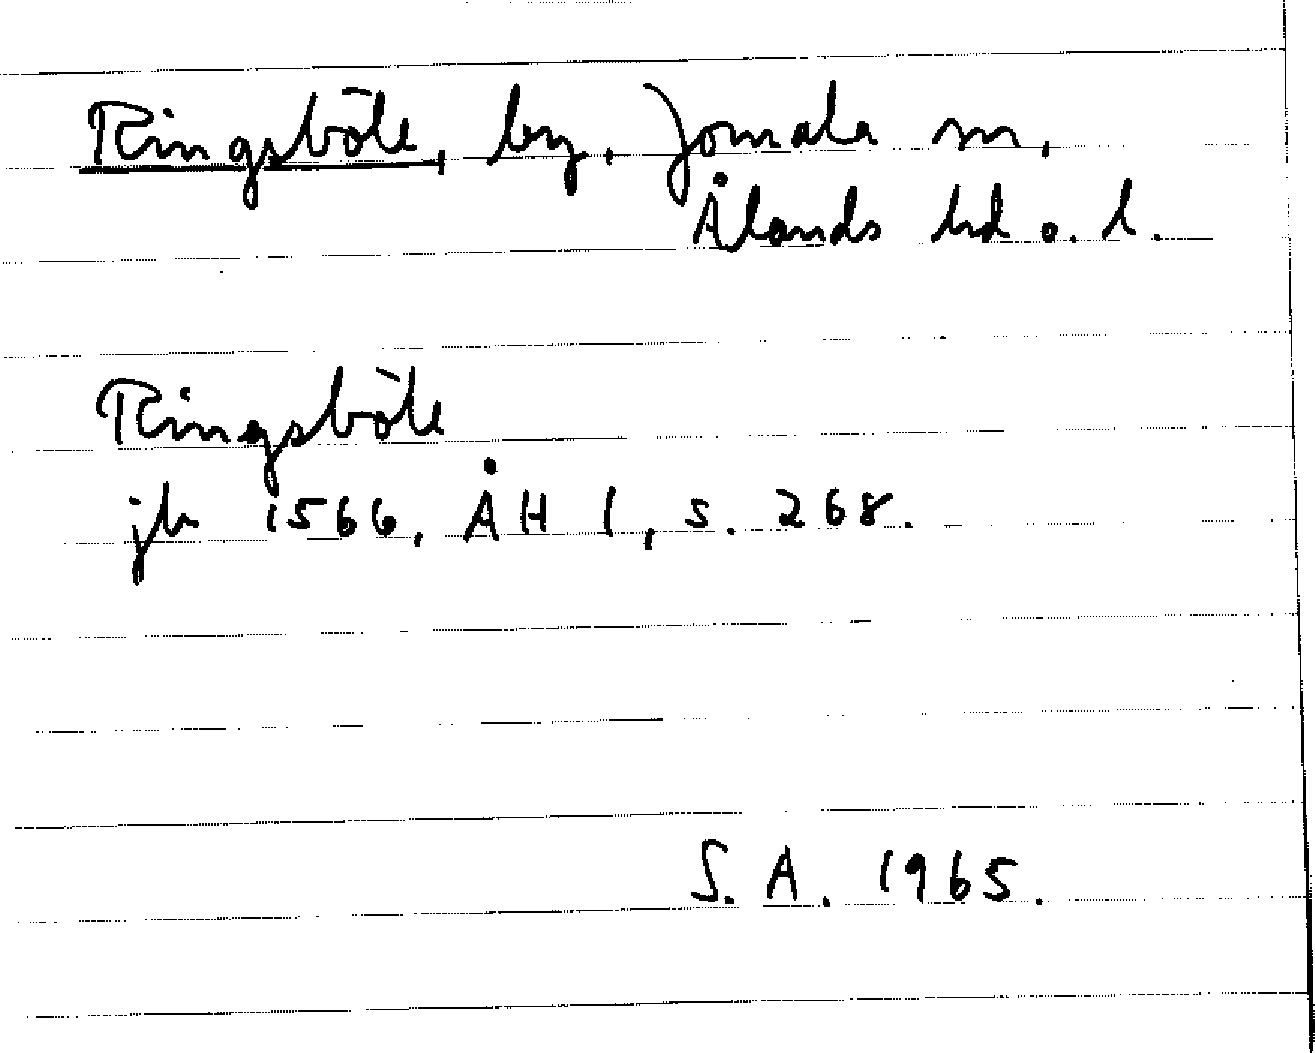 Ringsböle, by, Jomala sn,
Ålands hd o. l.
Ringsböle
jb 1566, ÅH 1, s. 268.
S. A. 1965.